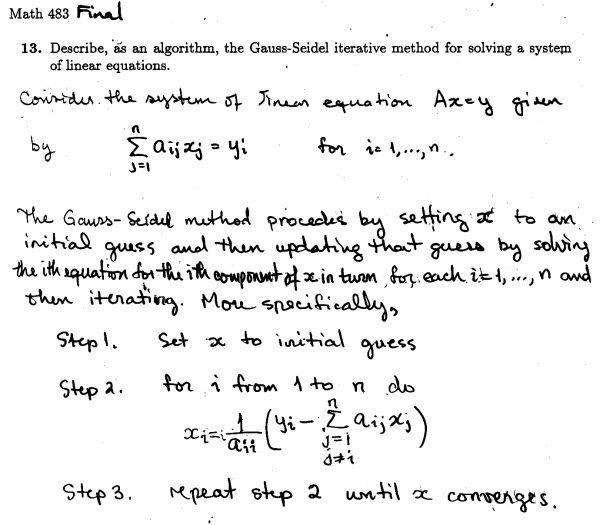 Math 483 Final
13. Describe, as an algorithm, the Gauss-Seidel iterative method for solving a system
of linear equations.
Consider the system of linear equation Ax=y given
by ∑_{j=1}^{n} a_{ij} x_j = y_i for i=1,...,n.
The Gauss-Seidel method procedes by setting x to an
initial guess and then updating that guess by solving
the ith equation for the ith component of x in turn for each i=1,...,n and
then iterating. More specifically,
Step 1. Set x to initial guess
Step 2. for i from 1 to n do
x_i = \frac{1}{a_{ii}} (y_i - ∑_{j=1, j≠i}^{n} a_{ij} x_j)
Step 3. repeat step 2 until x converges.